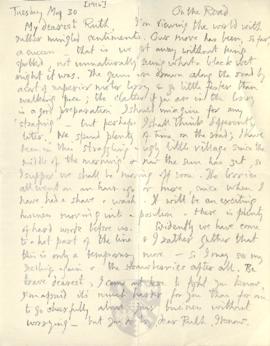 [1916]
Tuesday May 30 On the Road
My dearest Ruth I'm viewing the world with
rather mingled sentiments. Our move has been, so far,
a success — that is we got away without being
spotted not unnaturally seeing what a black wet
night it was. The guns are drawn along the road by
a superior motor lorry, & go little faster than
walking pace; the clatter if you are in the lorry
is a good preparation I should imagine for any
'strafing' — but perhaps I shall think differently
later. We spend plenty of time on the road; I have
been in this straggling ugly little village since the
middle of the morning & now the sun has set, so
I suppose we shall be moving off soon. The lorries
all went on an hour or more since when I
have had a shave & wash. It will be an exciting
business moving into position & there is plenty
of hard work before us. Evidently we have come
to a hot part of the line & I rather gather that
this is only a temporary move — so I may see my
again & the strawberries after all. Be
brave dearest, I am not here to fight you know,
I'm afraid it's much harder for you than for me
to go cheerfully about your business without
worrying — but you dear Ruth, I know.